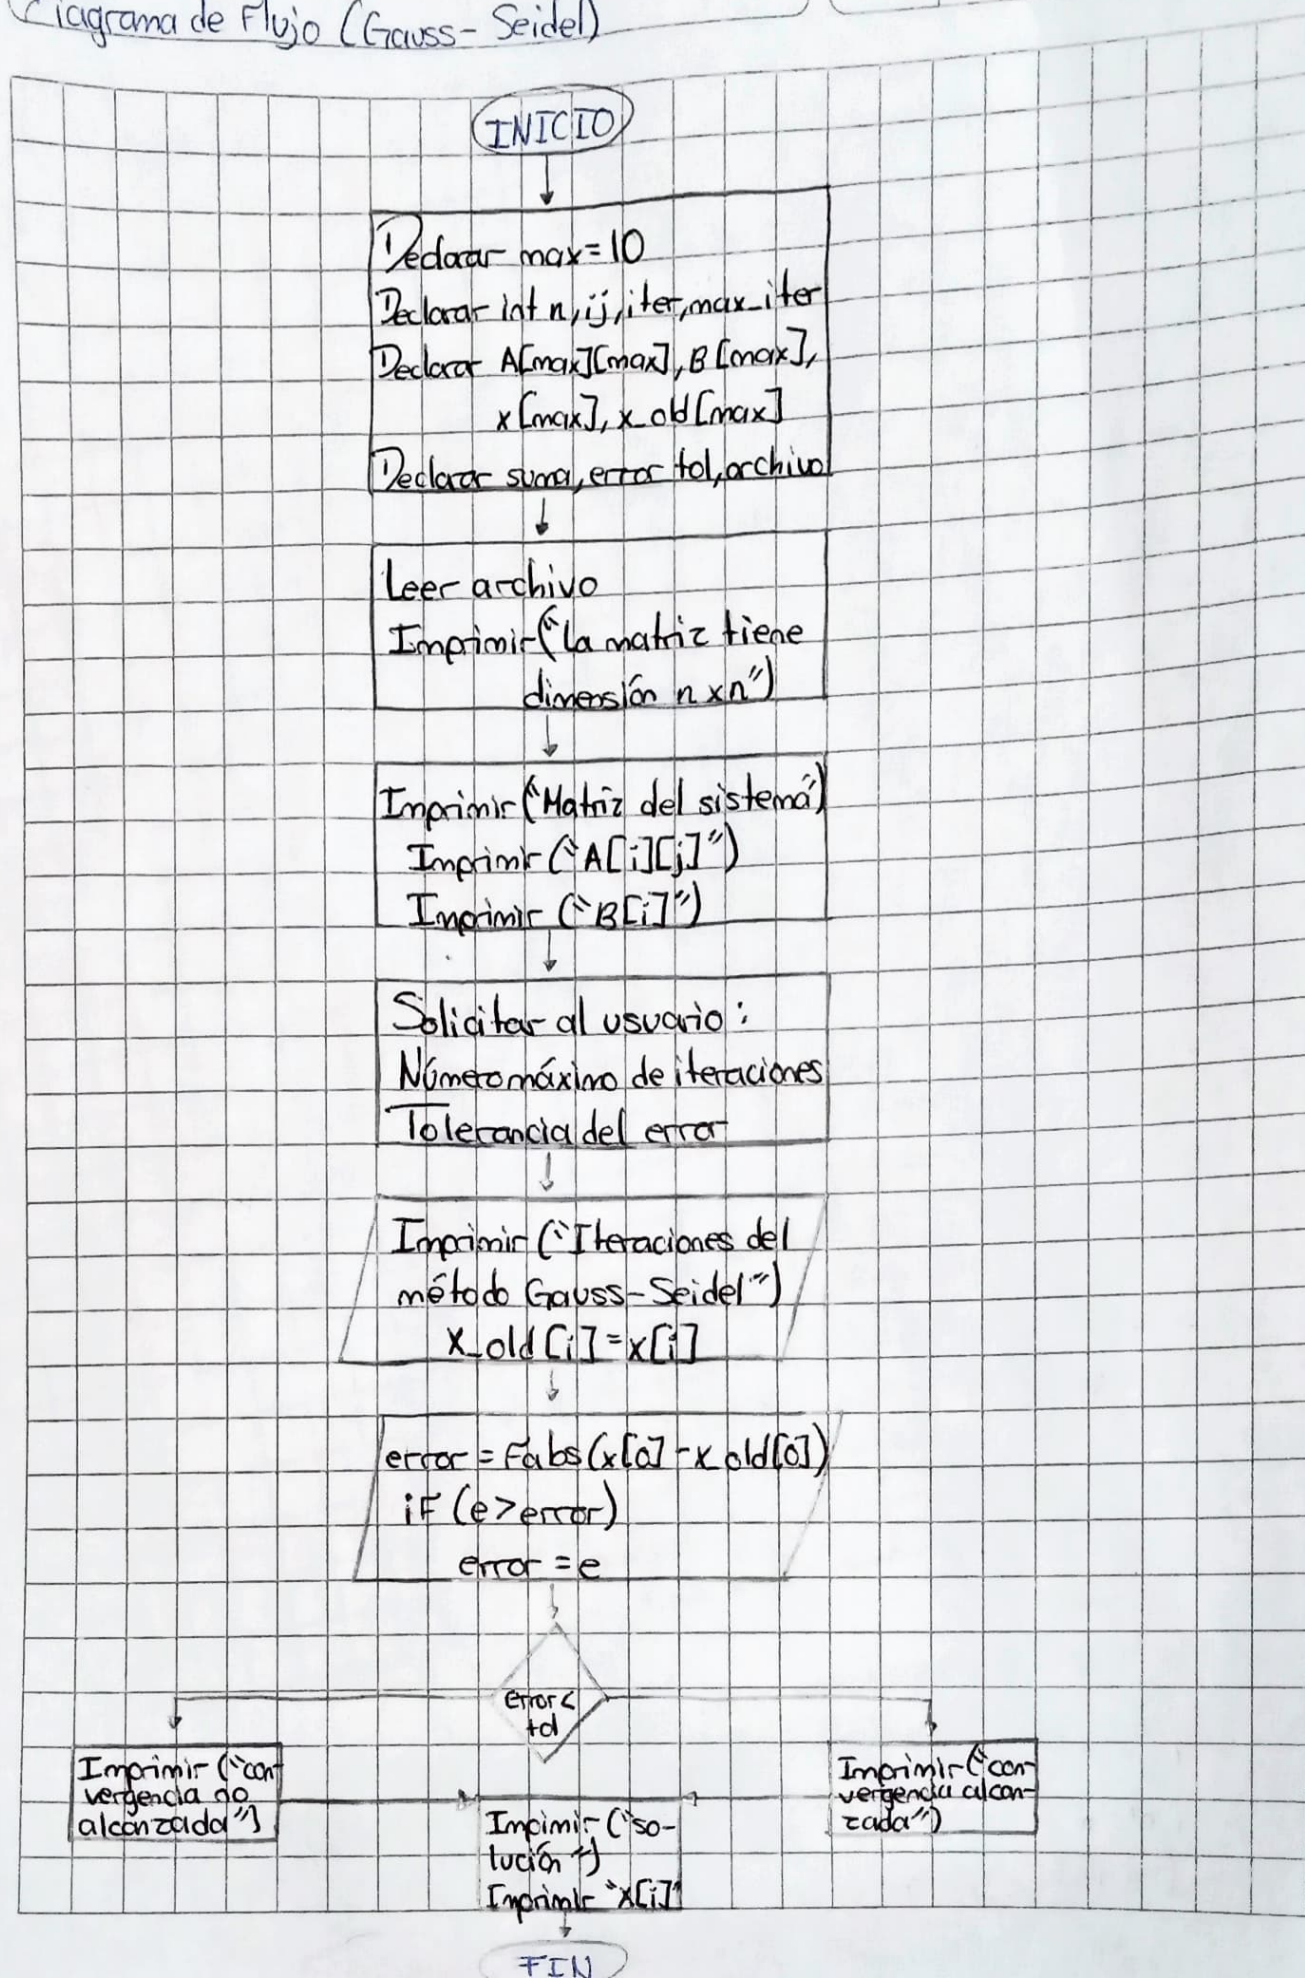 Diagrama de Flujo (Gauss-Seidel)
INICIO
Declarar max=10
Declarar int n,ij,iter,max_iter
Declarar A[max][max],B[max],
x[max], x_old[max]
Declarar suma,error tol,archivo
Leer archivo
Imprimir("La matriz tiene
dimensión n x n")
Imprimir("Matriz del sistema")
Imprimir("A[i][j]")
Imprimir("B[i]")
Solicitar al usuario:
Número máximo de iteraciones
Tolerancia del error
Imprimir("Iteraciones del
método Gauss-Seidel")
X_old[i]=x[i]
error=Fabs(x[0]-x_old[0])
if(e>error)
error=e
error<
tol
Imprimir("con-
vergencia no
alcanzada")
Imprimir("con-
vergencia alcan-
zada")
Impimir("so-
lución")
Imprimir "X[i]"
FIN